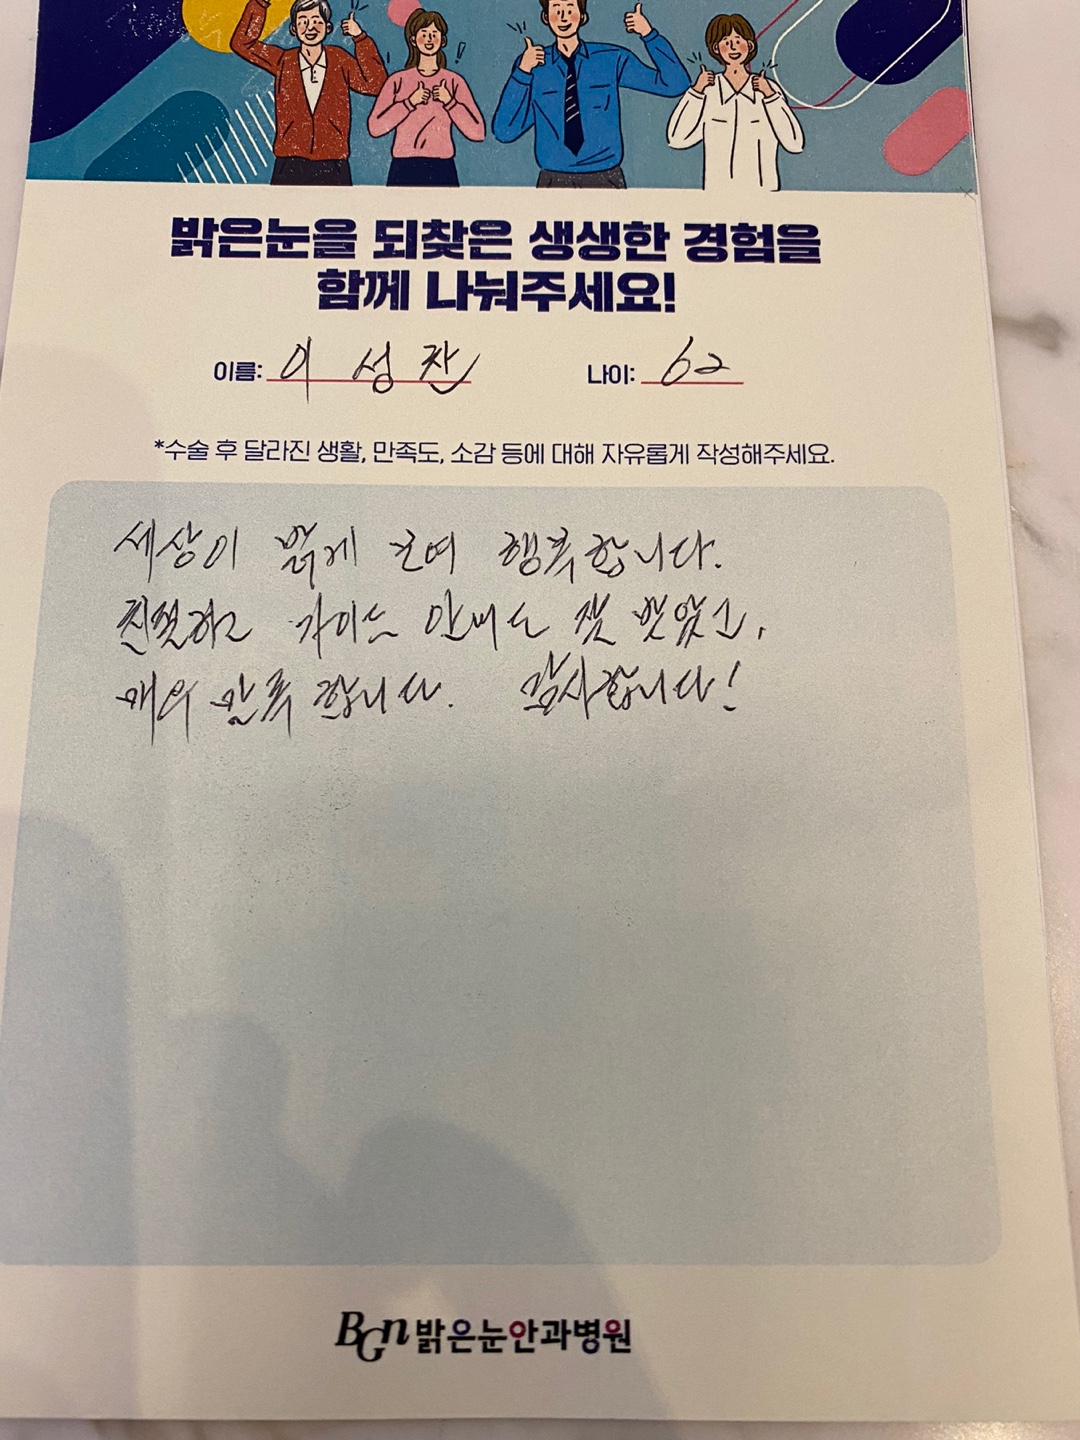 밝은눈을 되찾은 생생한 경험을
함께 나눠주세요!
이름: 이성찬 나이: 62
*수술 후 달라진 생활, 만족도, 소감 등에 대해 자유롭게 작성해주세요.
세상이 밝게 보여 행복합니다.
친절하고 가이드 안내도 잘 받았고,
매우 만족합니다. 감사합니다!
BGn 밝은눈안과병원